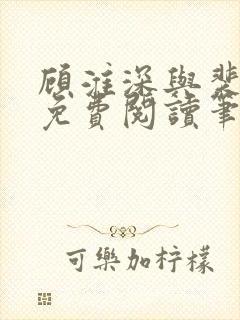 顾淮深與裴
免費閱讀筆
可樂加柠檬